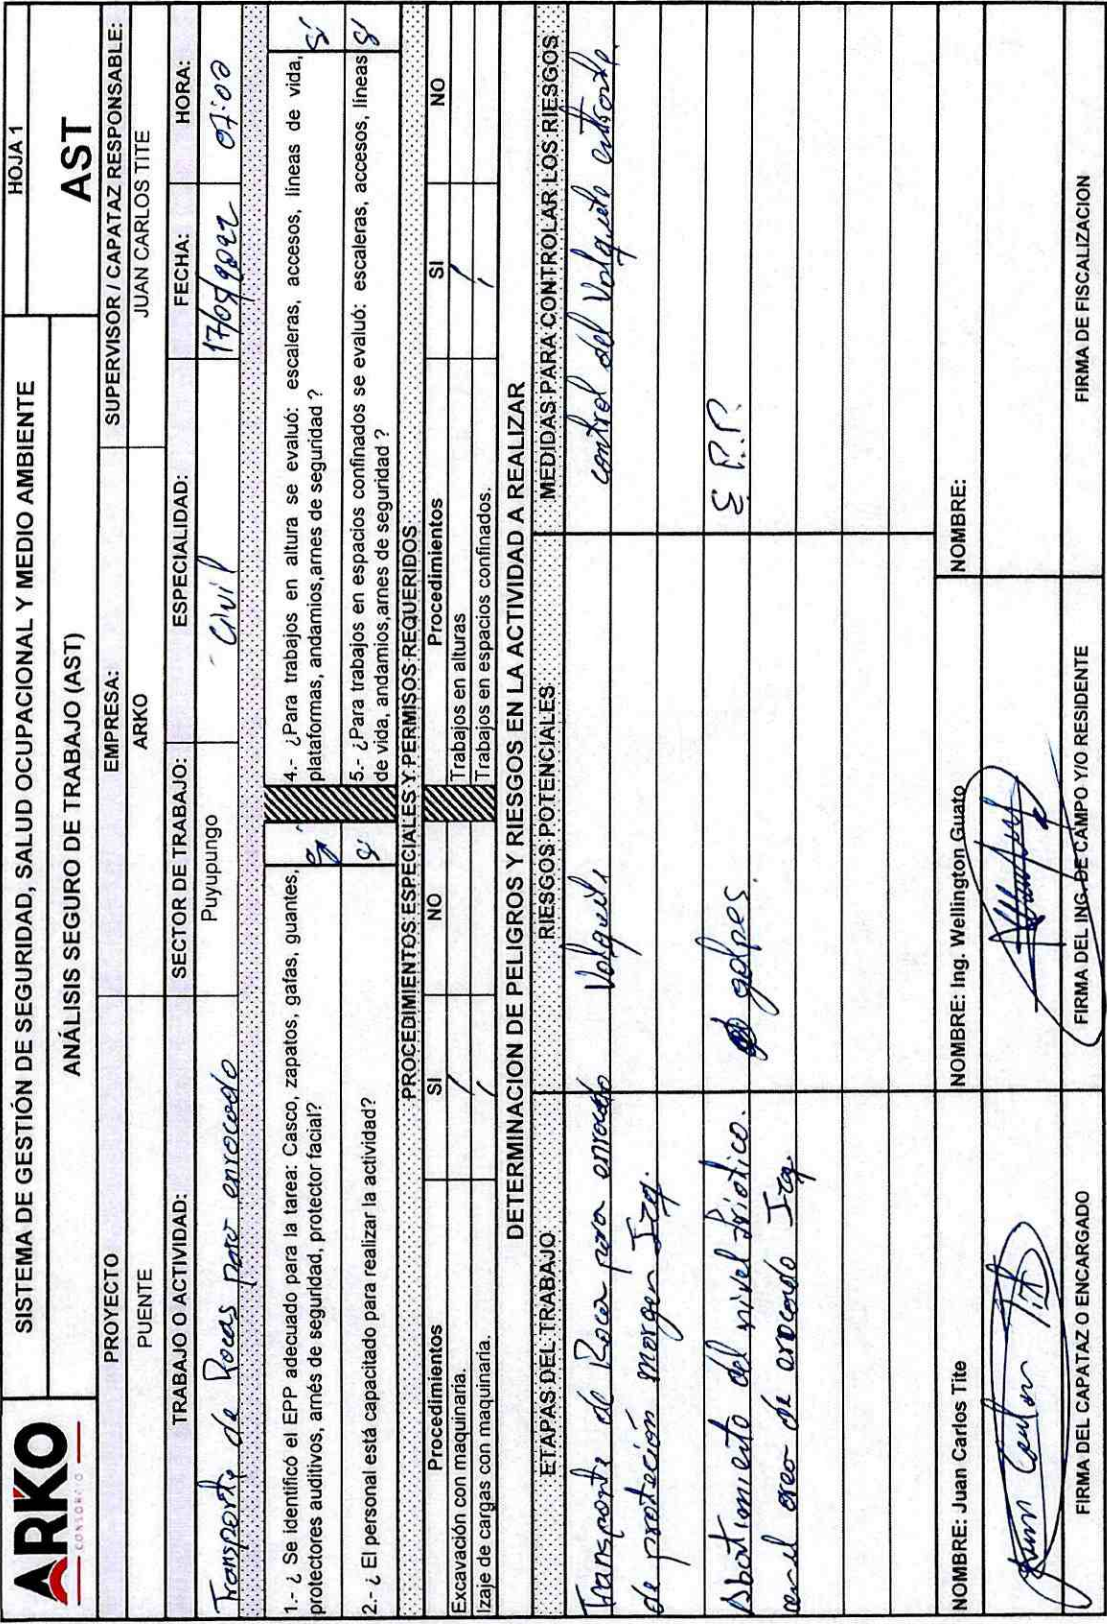 ARKO
CONSORCIO
SISTEMA DE GESTIÓN DE SEGURIDAD, SALUD OCUPACIONAL Y MEDIO AMBIENTE
HOJA 1
ANÁLISIS SEGURO DE TRABAJO (AST)
AST
PROYECTO
EMPRESA:
SUPERVISOR / CAPATAZ RESPONSABLE:
PUENTE
ARKO
JUAN CARLOS TITE
TRABAJO O ACTIVIDAD:
SECTOR DE TRABAJO:
ESPECIALIDAD:
FECHA:
HORA:
Transporte de Rocas para enrocado
Puyupungo
Civil
17/05/2022
07:00
1.- ¿ Se identificó el EPP adecuado para la tarea: Casco, zapatos, gafas, guantes,
protectores auditivos, arnés de seguridad, protector facial?
Si
4.- ¿Para trabajos en altura se evaluó: escaleras, accesos, lineas de vida,
plataformas, andamios,arnes de seguridad ?
Si
2.- ¿ El personal está capacitado para realizar la actividad?
Si
5.- ¿Para trabajos en espacios confinados se evaluó: escaleras, accesos, líneas
de vida, andamios,arnes de seguridad ?
Si
PROCEDIMIENTOS ESPECIALES Y PERMISOS REQUERIDOS
Procedimientos
SI
NO
Procedimientos
SI
NO
Excavación con maquinaria.
/
Trabajos en alturas
/
Izaje de cargas con maquinaria.
/
Trabajos en espacios confinados.
/
DETERMINACION DE PELIGROS Y RIESGOS EN LA ACTIVIDAD A REALIZAR
ETAPAS DEL TRABAJO
RIESGOS POTENCIALES
MEDIDAS PARA CONTROLAR LOS RIESGOS
Transporte de Roca para enrocado
Volquete
control del Volquete entrante
de protección margen Izq.
Abartimiento del nivel friotico.
golpes.
E.P.P.
en el area de enrocado Izq.
NOMBRE: Juan Carlos Tite
NOMBRE: Ing. Wellington Guato
NOMBRE:
Juan Carlos Tite
FIRMA DEL CAPATAZ O ENCARGADO
FIRMA DEL ING. DE CAMPO Y/O RESIDENTE
FIRMA DE FISCALIZACION